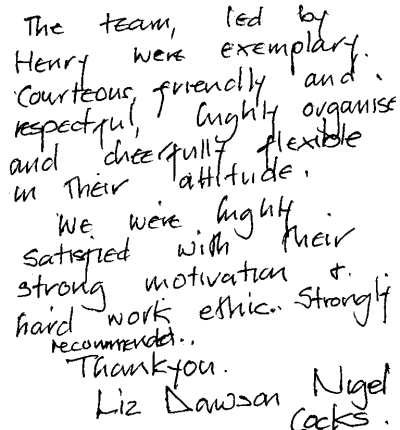 The team, led by
Henry were exemplary.
Courteous, friendly and
respectful, highly organise
and cheerfully flexible
in their attitude.
We were highly
satisfied with their
strong motivation &
hard work ethic. Strongly
recommended.
Thankyou.
Liz Dawson Nigel
Cocks.